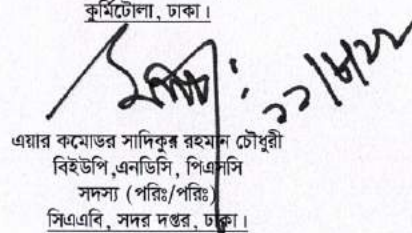 কুর্মিটোলা, ঢাকা।
এয়ার কমোডর সাদিকুর রহমান চৌধুরী
বিইউপি,এনডিসি, পিএসসি
সদস্য (পরিঃ/পরিঃ)
সিএএবি, সদর দপ্তর, ঢাকা।